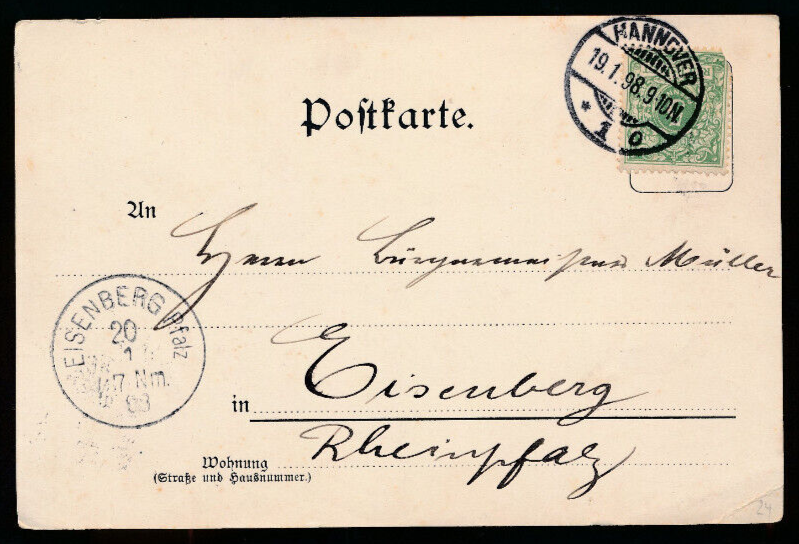 HANNOVER
19.1.98.9-10N.
* 1 o
Postkarte.
An
Herrn Bürgermeister Müller
EISENBERG Pfalz
20
1
7 Nm.
98
in Eisenberg
Rheinpfalz
Wohnung
(Straße und Hausnummer.)
24